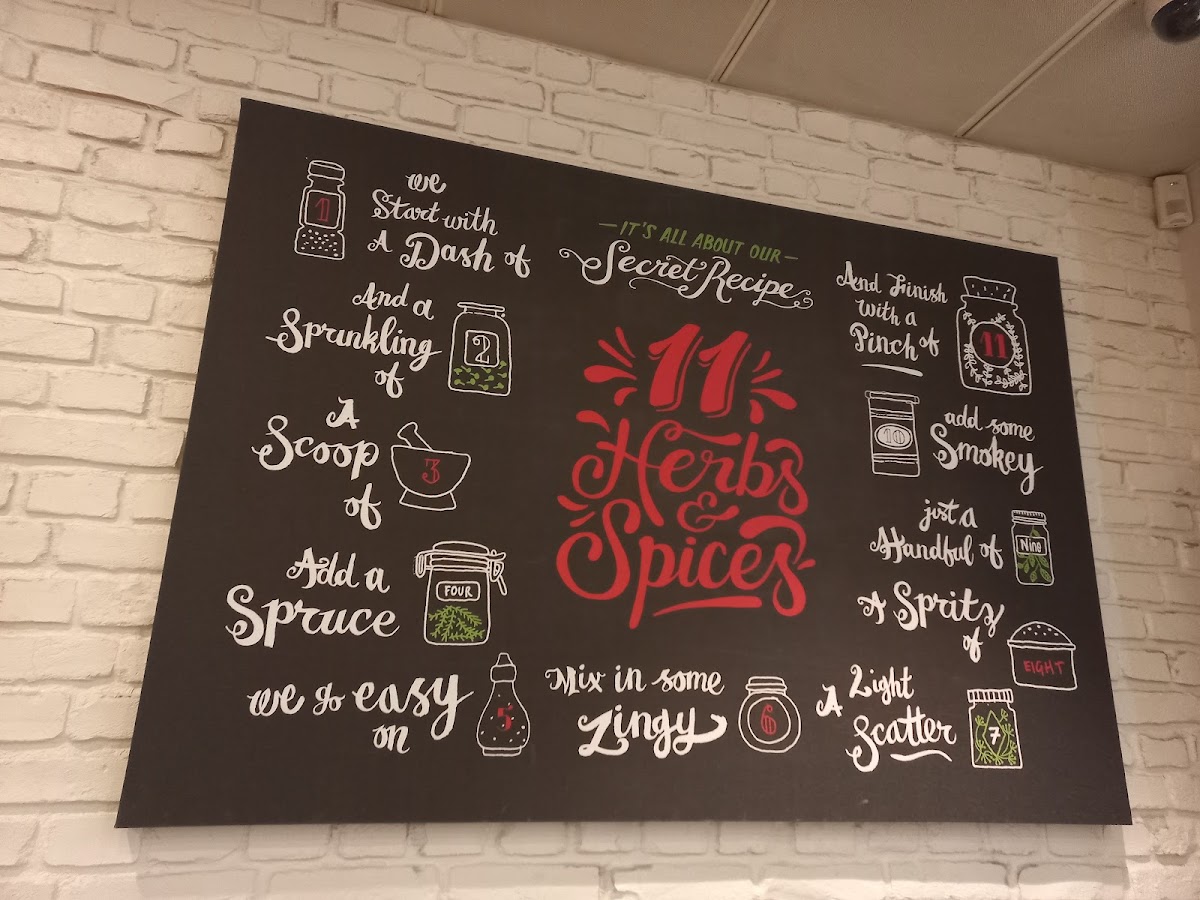 IT'S ALL ABOUT OUR
Secret Recipe
11
Herbs
&
Spices
1
we
Start with
A Dash of
And a
Sprinkling
of
2
A
Scoop
of
3
Add a
Spruce
FOUR
we go easy
on
5
Mix in some
Zingy
6
A Light
Scatter
7
A Spritz
of
EIGHT
just A
Handful of
Nine
add some
Smokey
10
And Finish
with a
Pinch of
11